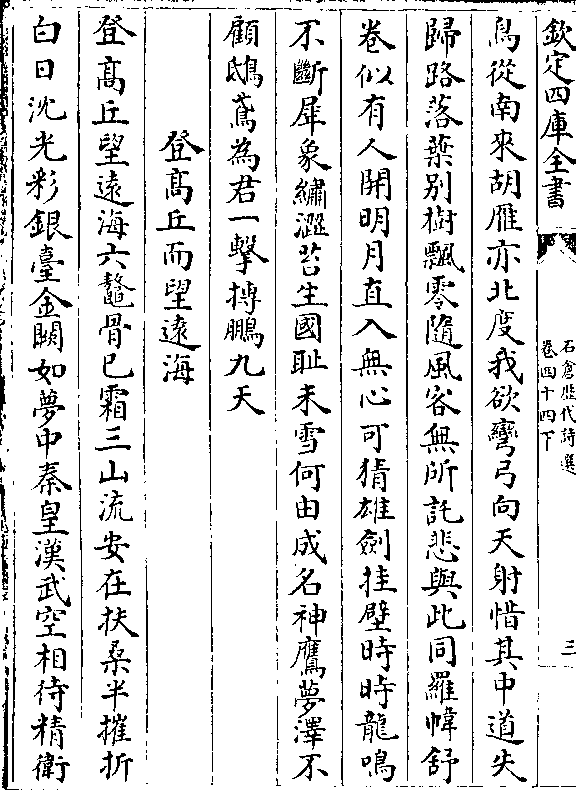 欽定四庫全書
石倉歴代詩選
卷四十四下
三
鳥從南來胡雁亦北度我欲彎弓向天射惜其中道失
歸路落葉别樹飄零隨風客無所託悲與此同羅幃舒
卷似有人開明月直入無心可猜雄劍挂壁時時龍鳴
不斷犀象繡澀苔生國耻未雪何由成名神鷹夢澤不
顧鴟鳶為君一擊摶鵬九天
登髙丘而望逺海
登髙丘望逺海六鼇骨已霜三山流安在扶桑半摧折
白日沈光彩銀臺金闕如夢中秦皇漢武空相待精衛